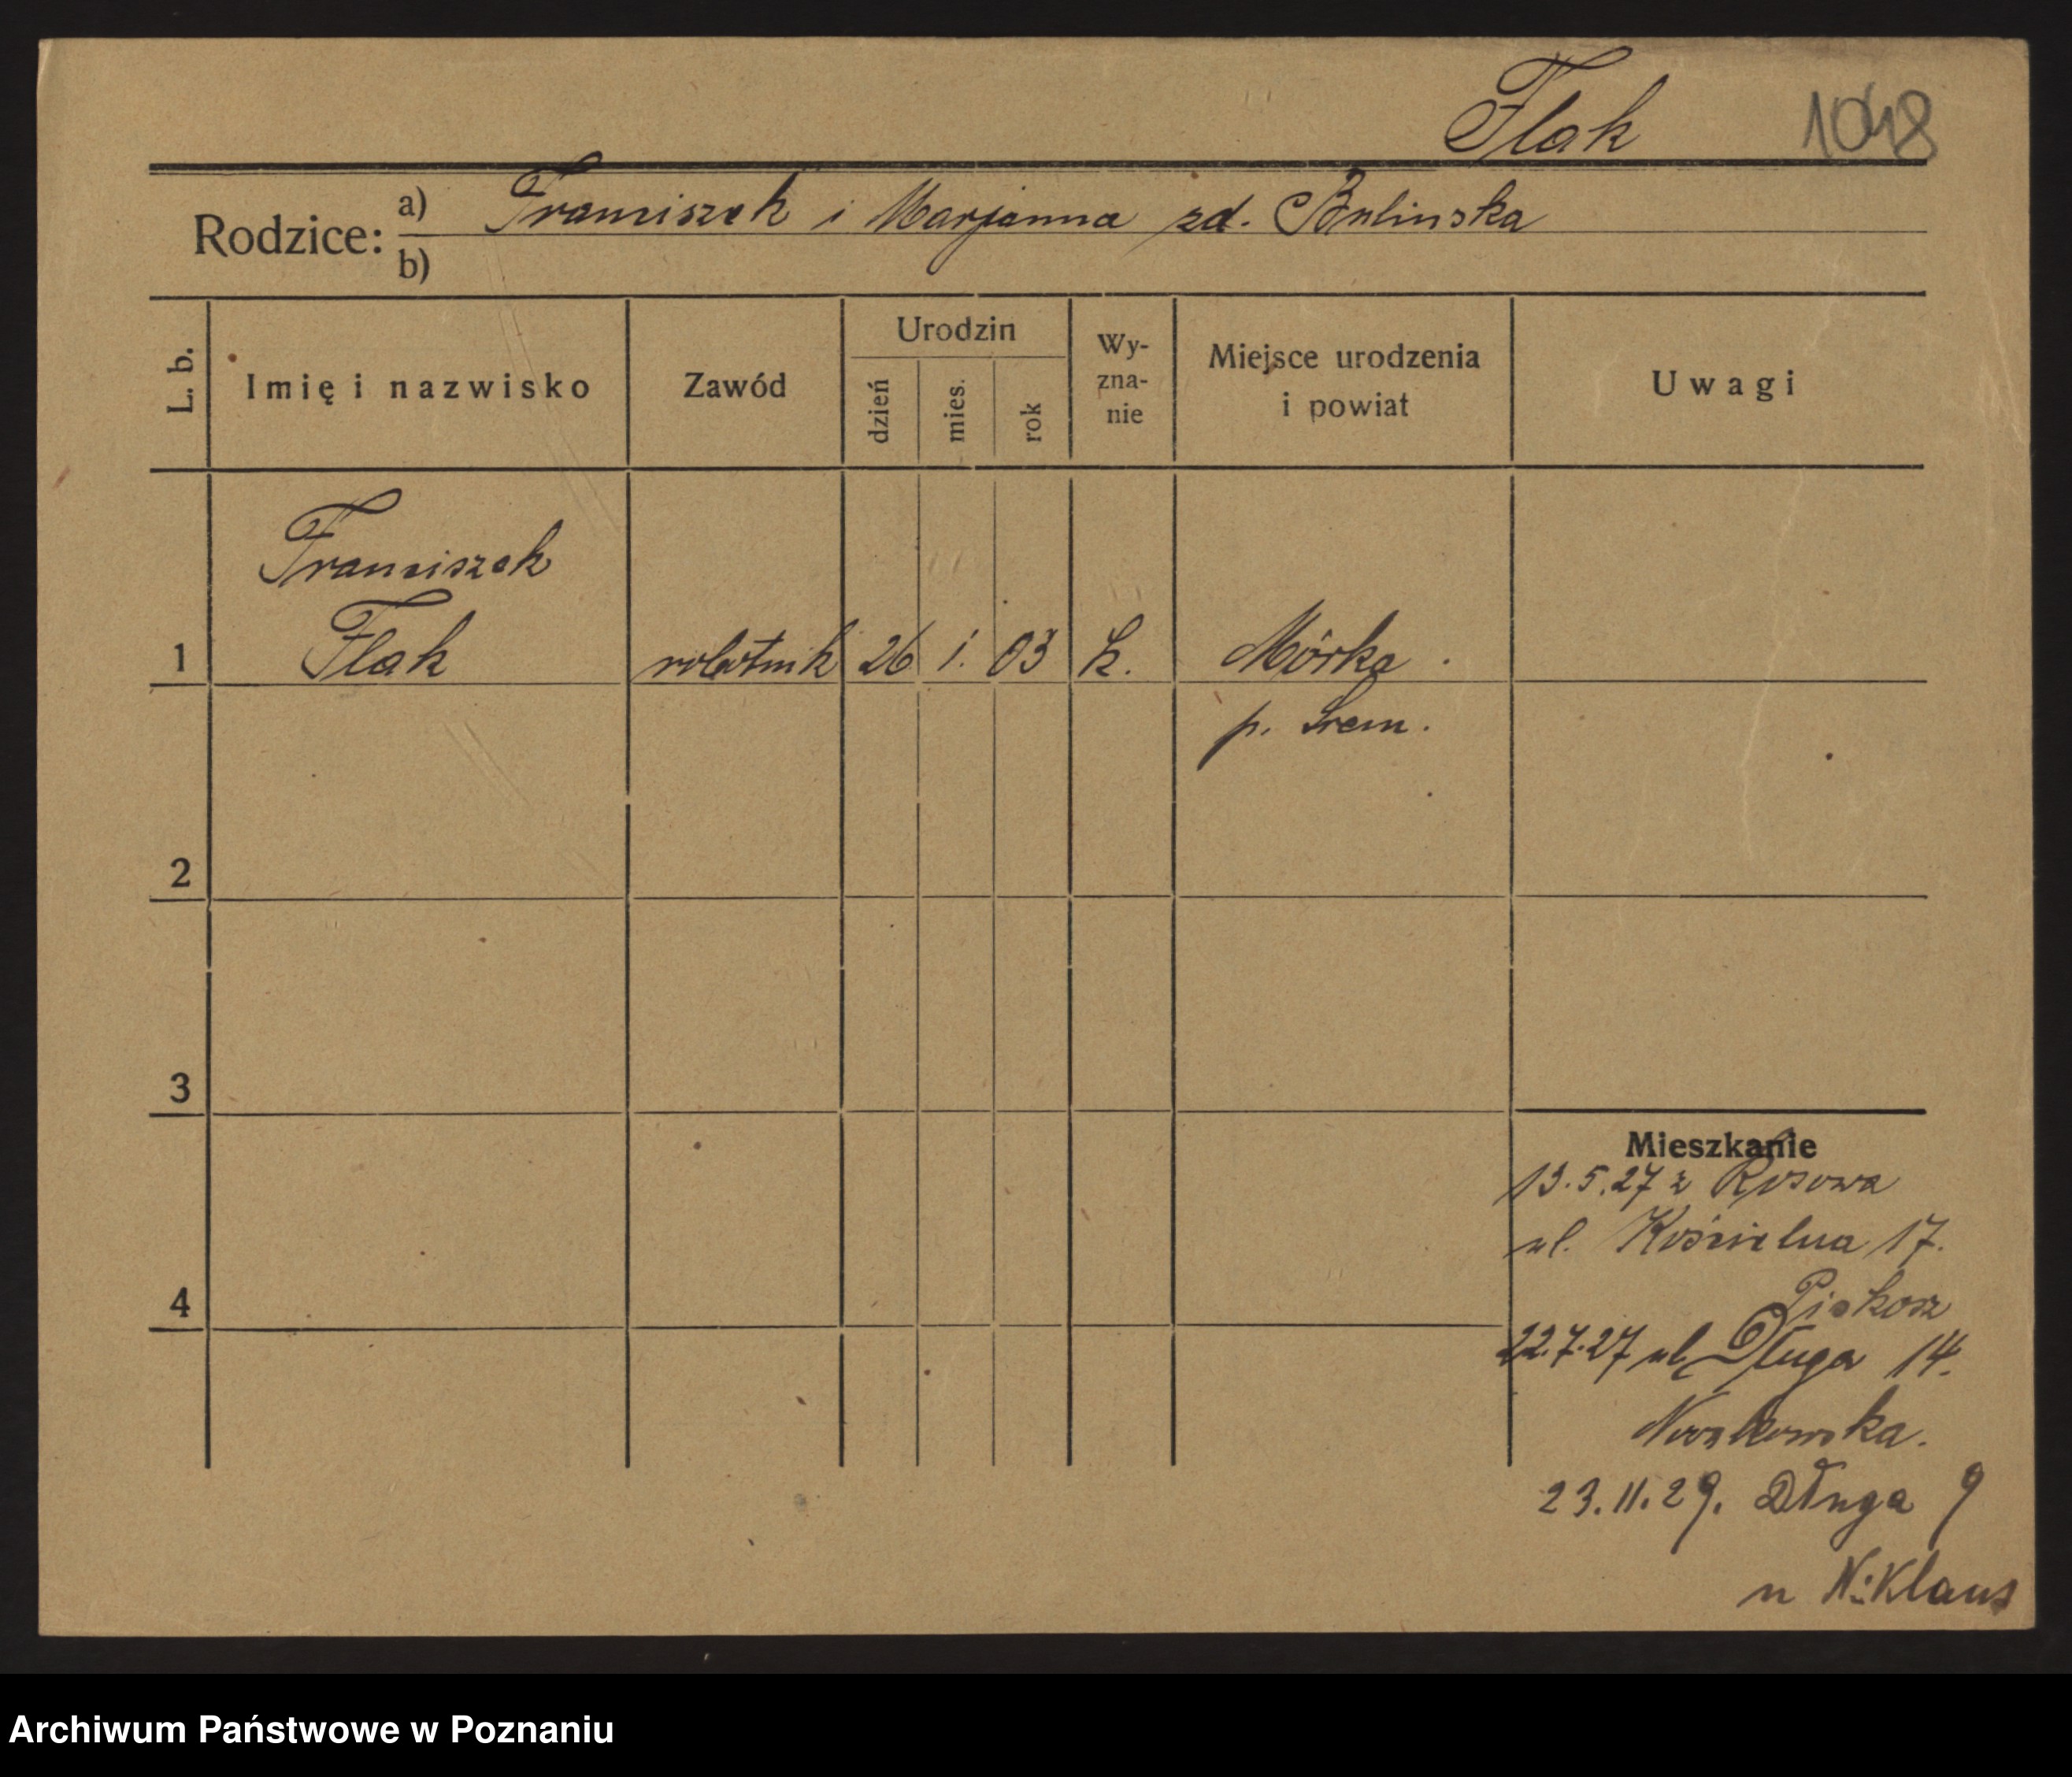 Flak 1048
Rodzice: a) Franciszek i Marjanna zd. Bulinska
b)
L. b.
Imię i nazwisko
Zawód
Urodzin
dzień
mies.
rok
Wy-
zna-
nie
Miejsce urodzenia
i powiat
Uwagi
Franciszek
1 Flak robotnik 26 1. 03 k. Mórka.
p. Śrem.
2
3
Mieszkanie
13.5.27 z Rosowa
ul. Kościelna 17.
4
Piskosz
22.7.27 ul. Długa 14.
23.11.29. Długa 9
u Niklaus
Archiwum Państwowe w Poznaniu